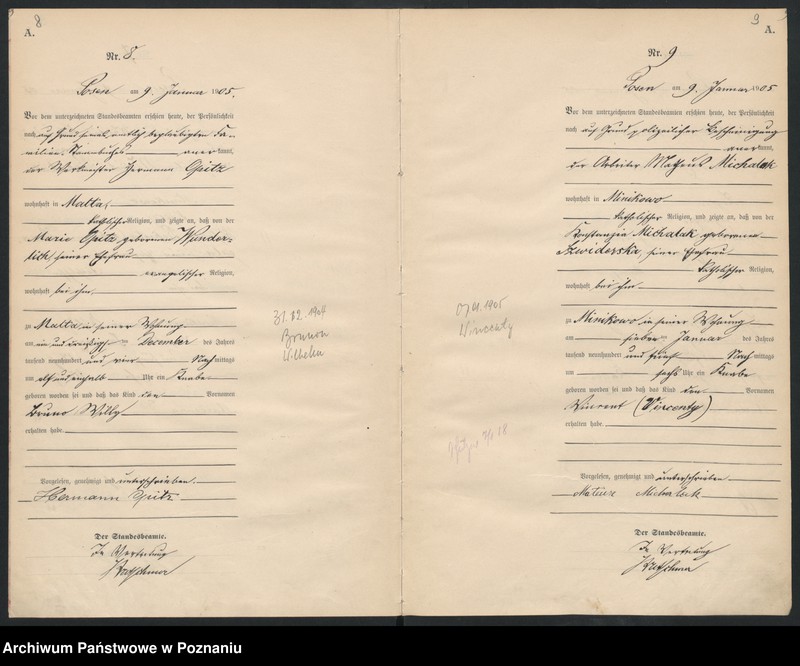 8
A.
Nr. 8.
Posen am 9. Januar 1905.
Vor dem unterzeichneten Standesbeamten erschien heute, der Persönlichkeit
nach auf Grund seines amtlich beglaubigten Fa-
milien-Stammbuches anerkannt,
der Werkmeister Hermann Opitz
wohnhaft in Malta,
katholischer Religion, und zeigte an, daß von der
Marie Opitz geborenen Wunder-
lich seiner Ehefrau
evangelischer Religion,
wohnhaft bei ihm
zu Malta in seiner Wohnung
am ein und dreißigsten December des Jahres
tausend neunhundert und vier Nachmittags
um elf und einhalb Uhr ein Knabe
geboren worden sei und daß das Kind die Vornamen
Bruno Willy
erhalten habe.
Vorgelesen, genehmigt und unterschrieben.
Hermann Opitz
Der Standesbeamte.
In Vertretung
31.12.1904
Brunon
Wilhelm
9
A.
Nr. 9
Posen am 9. Januar 1905
Vor dem unterzeichneten Standesbeamten erschien heute, der Persönlichkeit
nach auf Grund polizeilicher Bescheinigung
anerkannt,
der Arbeiter Matheus Michalak
wohnhaft in Minikowo
katholischer Religion, und zeigte an, daß von der
Konstanzia Michalak geborenen
Szwiderska, seiner Ehefrau
katholischer Religion,
wohnhaft bei ihm
zu Minikowo in seiner Wohnung
am sieben Januar des Jahres
tausend neunhundert und fünf Nachmittags
um sechs Uhr ein Knabe
geboren worden sei und daß das Kind den Vornamen
Vincent (Vincenty)
erhalten habe.
Vorgelesen, genehmigt und unterschrieben
Mateusz Michalak
Der Standesbeamte.
In Vertretung
07.01.1905
Wincenty
Archiwum Państwowe w Poznaniu